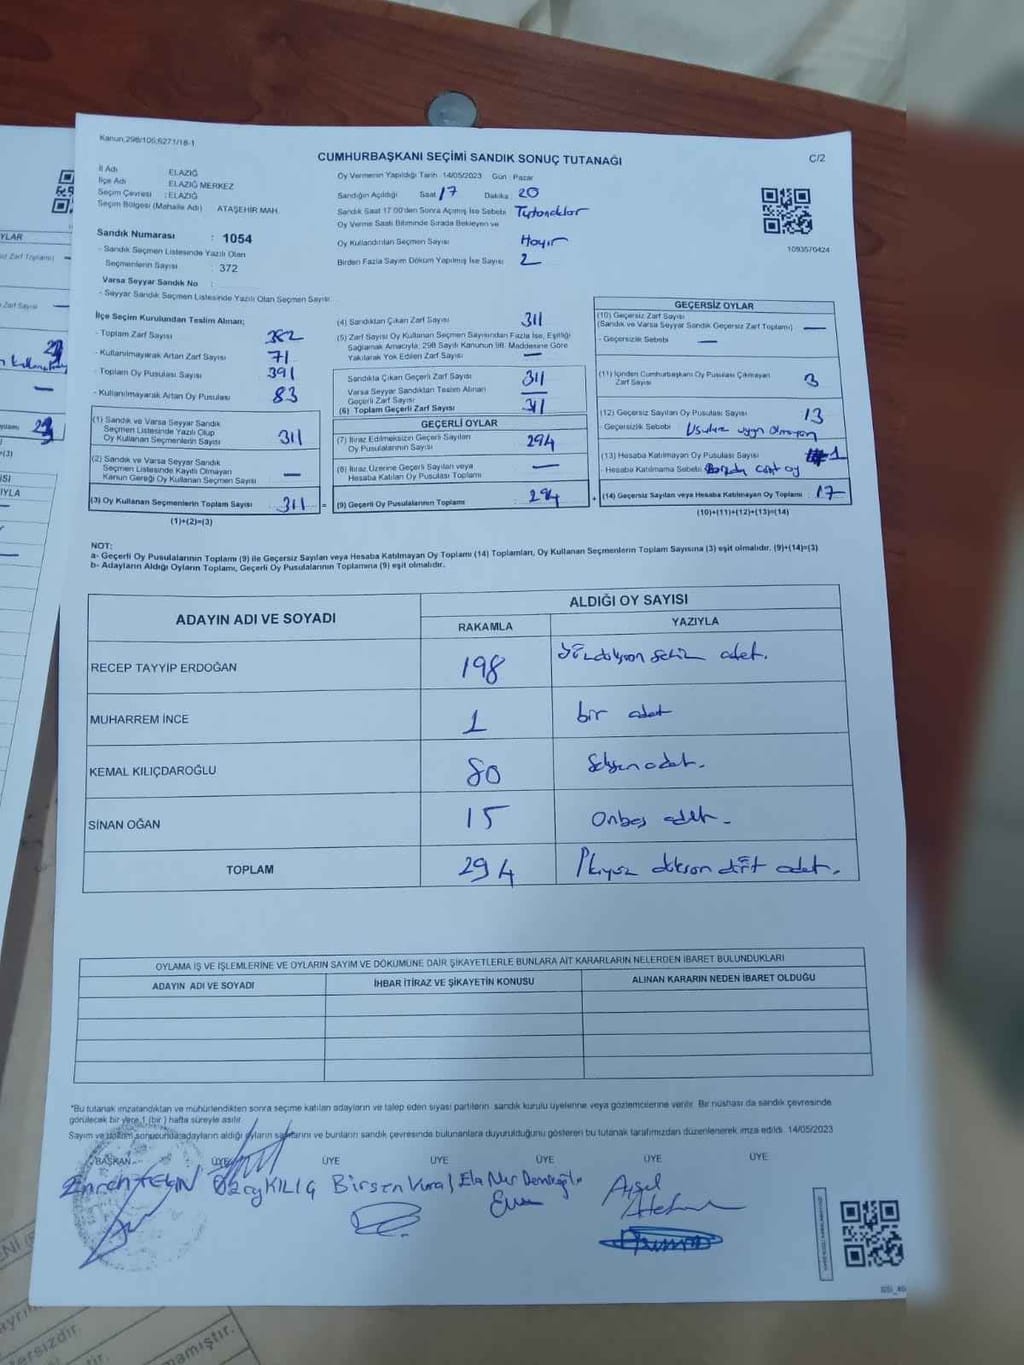 Kanun;298/105;6271/18-1
CUMHURBAŞKANI SEÇİMİ SANDIK SONUÇ TUTANAĞI
C/2
İl Adı : ELAZIĞ
İlçe Adı : ELAZIĞ MERKEZ
Seçim Çevresi : ELAZIĞ
Seçim Bölgesi (Mahalle Adı) : ATAŞEHİR MAH.
Oy Vermenin Yapıldığı Tarih 14/05/2023 Gün : Pazar
Sandığın Açıldığı Saat 17 Dakika 20
Sandık Saat 17:00'den Sonra Açılmış İse Sebebi Tutanaklar
Oy Verme Saati Bitiminde Sırada Bekleyen ve
Oy Kullandırılan Seçmen Sayısı Hayır
Birden Fazla Sayım Döküm Yapılmış İse Sayısı 2
1093570424
Sandık Numarası : 1054
- Sandık Seçmen Listesinde Yazılı Olan
Seçmenlerin Sayısı : 372
Varsa Seyyar Sandık No :
- Seyyar Sandık Seçmen Listesinde Yazılı Olan Seçmen Sayısı:
İlçe Seçim Kurulundan Teslim Alınan;
- Toplam Zarf Sayısı : 382
- Kullanılmayarak Artan Zarf Sayısı : 71
- Toplam Oy Pusulası Sayısı : 391
- Kullanılmayarak Artan Oy Pusulası : 83
(1) Sandık ve Varsa Seyyar Sandık
Seçmen Listesinde Yazılı Olup
Oy Kullanan Seçmenlerin Sayısı : 311
(2) Sandık ve Varsa Seyyar Sandık
Seçmen Listesinde Kayıtlı Olmayan
Kanun Gereği Oy Kullanan Seçmen Sayısı : —
(3) Oy Kullanan Seçmenlerin Toplam Sayısı : 311 =
(1)+(2)=(3)
(4) Sandıktan Çıkan Zarf Sayısı : 311
(5) Zarf Sayısı Oy Kullanan Seçmen Sayısından Fazla İse, Eşitliği
Sağlamak Amacıyla, 298 Sayılı Kanunun 98. Maddesine Göre
Yakılarak Yok Edilen Zarf Sayısı : —
Sandıkta Çıkan Geçerli Zarf Sayısı : 311
Varsa Seyyar Sandıktan Teslim Alınan
Geçerli Zarf Sayısı : —
(6) Toplam Geçerli Zarf Sayısı : 311
GEÇERLİ OYLAR
(7) İtiraz Edilmeksizin Geçerli Sayılan
Oy Pusulalarının Sayısı : 294
(8) İtiraz Üzerine Geçerli Sayılan veya
Hesaba Katılan Oy Pusulası Toplamı : —
(9) Geçerli Oy Pusulalarının Toplamı : 294 +
GEÇERSİZ OYLAR
(10) Geçersiz Zarf Sayısı
(Sandık ve Varsa Seyyar Sandık Geçersiz Zarf Toplamı) : —
- Geçersizlik Sebebi : —
(11) İçinden Cumhurbaşkanı Oy Pusulası Çıkmayan
Zarf Sayısı : 3
(12) Geçersiz Sayılan Oy Pusulası Sayısı : 13
- Geçersizlik Sebebi : Usulüne uygun olmayan
(13) Hesaba Katılmayan Oy Pusulası Sayısı : 1
- Hesaba Katılmama Sebebi : çift oy
(14) Geçersiz Sayılan veya Hesaba Katılmayan Oy Toplamı : 17
(10)+(11)+(12)+(13)=(14)
NOT:
a- Geçerli Oy Pusulalarının Toplamı (9) ile Geçersiz Sayılan veya Hesaba Katılmayan Oy Toplamı (14) Toplamları, Oy Kullanan Seçmenlerin Toplam Sayısına (3) eşit olmalıdır. (9)+(14)=(3)
b- Adayların Aldığı Oyların Toplamı, Geçerli Oy Pusulalarının Toplamına (9) eşit olmalıdır.
ADAYIN ADI VE SOYADI
ALDIĞI OY SAYISI
RAKAMLA YAZIYLA
RECEP TAYYİP ERDOĞAN 198 Yüzdoksan Sekiz adet.
MUHARREM İNCE 1 bir adet
KEMAL KILIÇDAROĞLU 80 Seksen adet.
SİNAN OĞAN 15 Onbeş adet.
TOPLAM 294 İkiyüz doksan dört adet.
OYLAMA İŞ VE İŞLEMLERİNE VE OYLARIN SAYIM VE DÖKÜMÜNE DAİR ŞİKAYETLERLE BUNLARA AİT KARARLARIN NELERDEN İBARET BULUNDUKLARI
ADAYIN ADI VE SOYADI İHBAR İTİRAZ VE ŞİKAYETİN KONUSU ALINAN KARARIN NEDEN İBARET OLDUĞU
*Bu tutanak imzalandıktan ve mühürlendikten sonra seçime katılan adayların ve talep eden siyasi partilerin sandık kurulu üyelerine veya gözlemcilerine verilir. Bir nüshası da sandık çevresinde
görülecek bir yere 1 (bir) hafta süreyle asılır.
Sayım ve döküm sonucunda adayların aldığı oyların sayılarını ve bunların sandık çevresinde bulunanlara duyurulduğunu gösteren bu tutanak tarafımızdan düzenlenerek imza edildi. 14/05/2023
BAŞKAN ÜYE ÜYE ÜYE ÜYE ÜYE ÜYE
Özay KILIÇ Birsen Vural Ela Nur Aysel